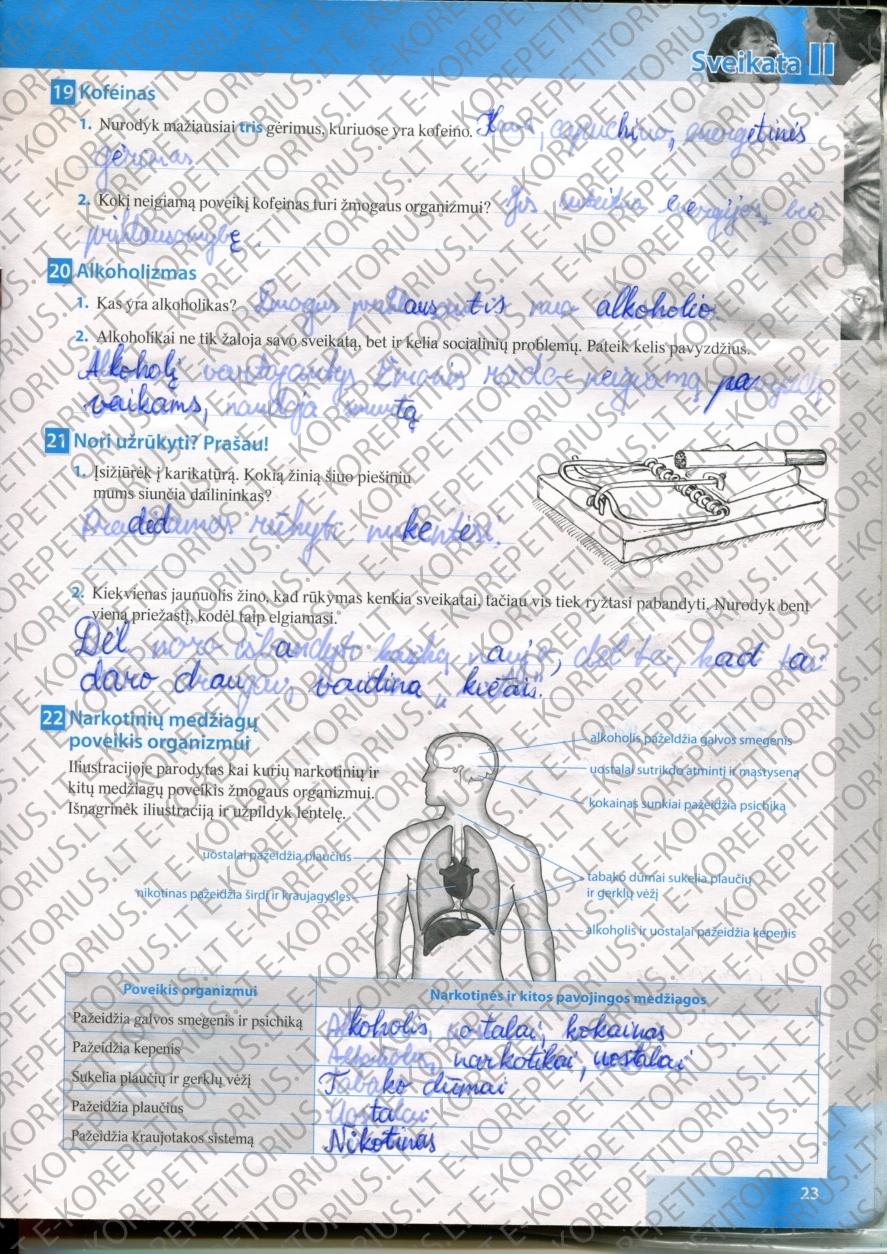 Sveikata II
19 Kofeinas
1. Nurodyk mažiausiai tris gėrimus, kuriuose yra kofeino. Kava, capuchino, energetinis
gėrimas
2. Kokį neigiamą poveikį kofeinas turi žmogaus organizmui? Jis suteikia energijos, bei
priklausomybę.
20 Alkoholizmas
1. Kas yra alkoholikas? Žmogus priklausantis nuo alkoholio.
2. Alkoholikai ne tik žaloja savo sveikatą, bet ir kelia socialinių problemų. Pateik kelis pavyzdžius.
Alkoholį vartojantys žmonės rodo neigiamą pavyzdį
vaikams, naudoja smurtą
21 Nori užrūkyti? Prašau!
1. Įsižiūrėk į karikatūrą. Kokią žinią šiuo piešiniu
mums siunčia dailininkas?
Pradedamas rūkyti nukentėsi.
2. Kiekvienas jaunuolis žino, kad rūkymas kenkia sveikatai, tačiau vis tiek ryžtasi pabandyti. Nurodyk bent
vieną priežastį, kodėl taip elgiamasi.
Dėl noro išbandyto kažką naujo, dėl to, kad tai
daro draugai, vaidina „kietais".
22 Narkotinių medžiagų
poveikis organizmui
Iliustracijoje parodytas kai kurių narkotinių ir
kitų medžiagų poveikis žmogaus organizmui.
Išnagrinėk iliustraciją ir užpildyk lentelę.
alkoholis pažeidžia galvos smegenis
uostalai sutrikdo atmintį ir mąstyseną
kokainas sunkiai pažeidžia psichiką
uostalai pažeidžia plaučius
nikotinas pažeidžia širdį ir kraujagysles
tabako dūmai sukelia plaučių
ir gerklų vėžį
alkoholis ir uostalai pažeidžia kepenis
Poveikis organizmui Narkotinės ir kitos pavojingos medžiagos
Pažeidžia galvos smegenis ir psichiką Alkoholis, uostalai, kokainas
Pažeidžia kepenis Alkoholis, narkotikai, uostalai
Sukelia plaučių ir gerklų vėžį Tabako dūmai
Pažeidžia plaučius Uostalai
Pažeidžia kraujotakos sistemą Nikotinas
23
E-KOREPETITORIUS.LT